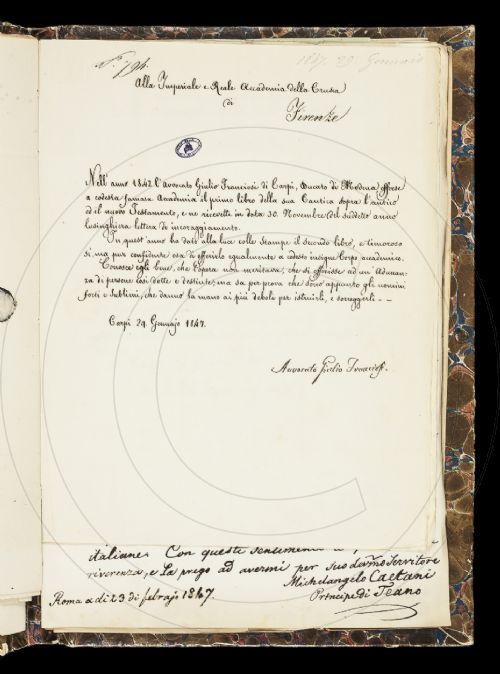 N.° 794.
1847. 29. Gennaio
Alla Imperiale e Reale Accademia della Crusca
di
Firenze
Nell'anno 1842 l'Avvocato Giulio Franciosi di Carpi, Ducato di Modena offerse
a codesta famosa Accademia il primo libro della sua Cantica sopra l'antico
ed il nuovo Testamento, e ne ricevette in data 30. Novembre del suddetto anno
lusinghiera lettera di incoraggiamento.
In quest'anno ha dato alla luce colle stampe il secondo libro, e timoroso
sì, ma pur confidente osa di offrirlo egualmente a codesto insigne Corpo accademico.
Conosce egli bene, che l'opera non meritava, che si offrisse ad un'Adunan-
za di persone così dotte e distinte; ma sa per prova che sono appunto gli uomini
forti e sublimi, che danno la mano ai più deboli per istruirli, e sorreggerli. --
Carpi 29. Gennajo 1847.
Avvocato Giulio Franciosi.
italiane. Con questi sentimenti
riverenza, e La prego ad avermi per Suo dmo Servitore
Michelangelo Caetani
Principe di Teano
Roma a dì 23 di febrajo 1847.